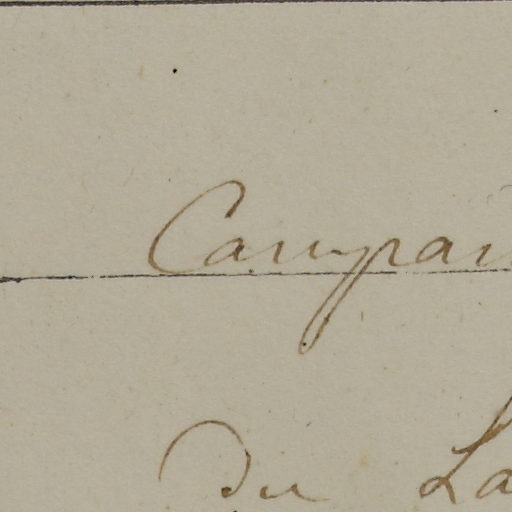 Campai
du La